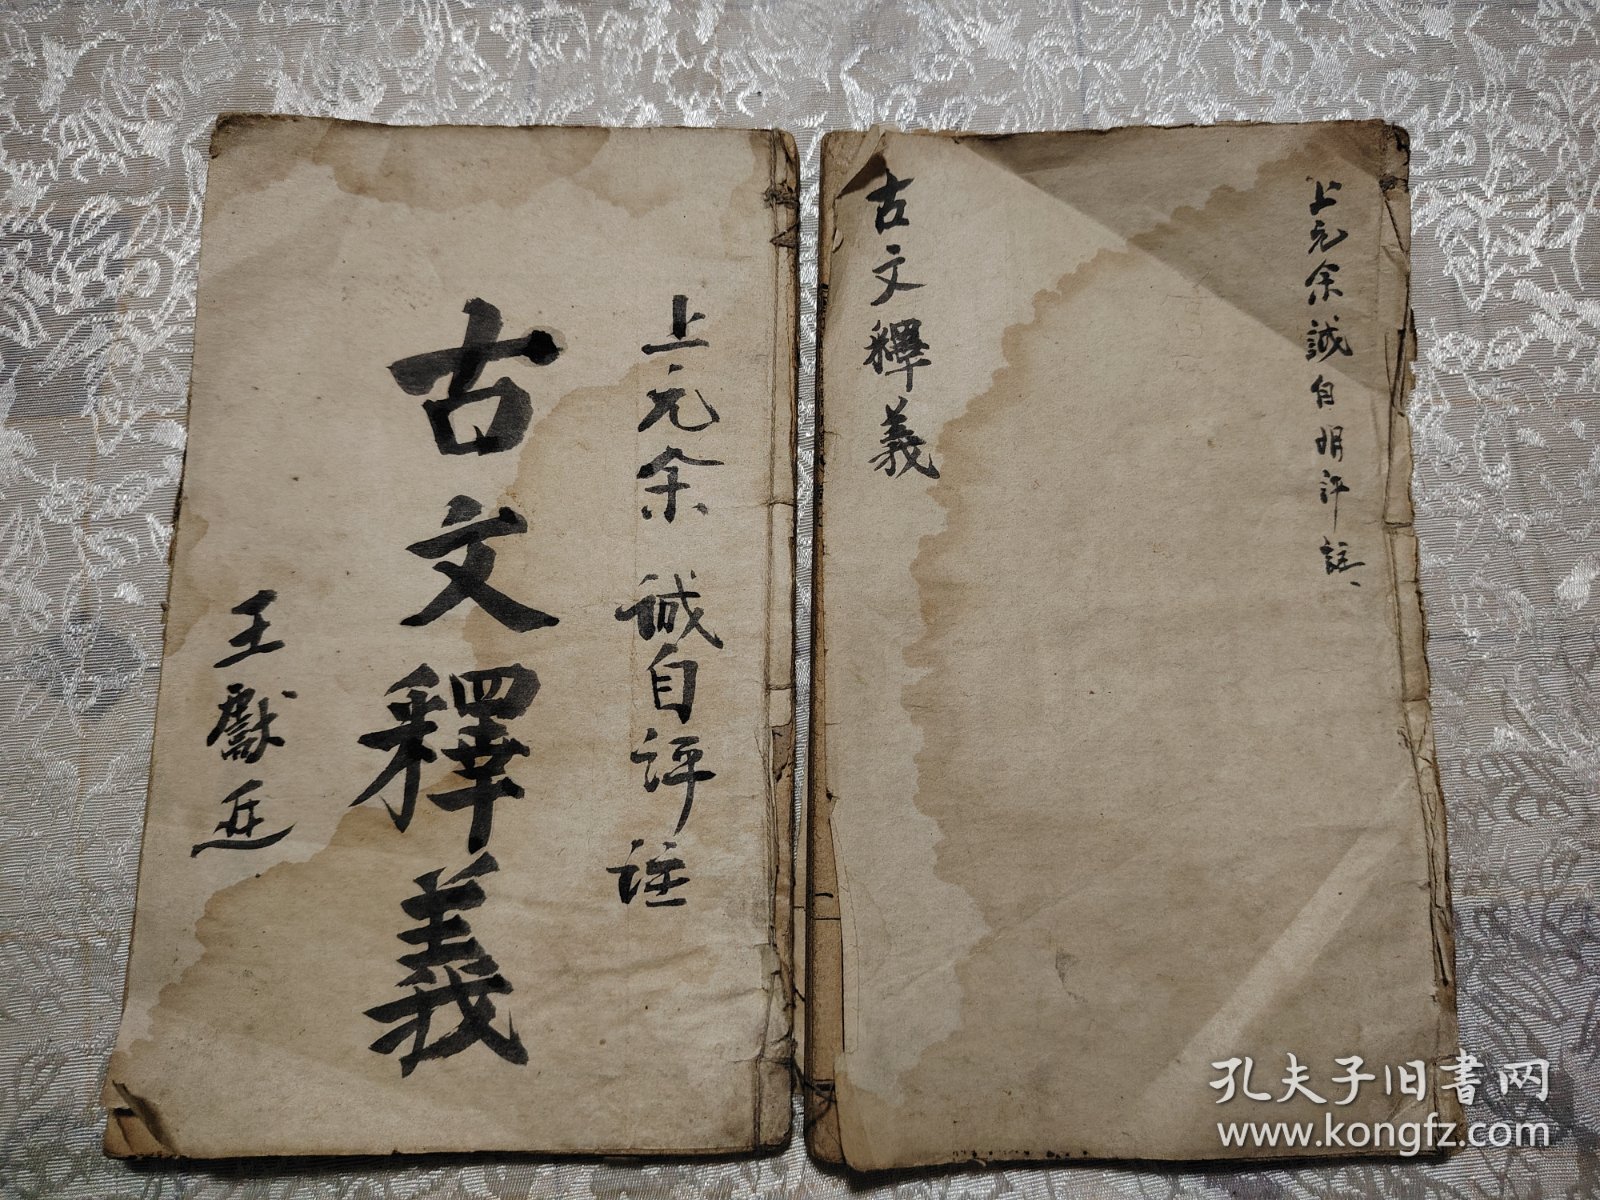 上元余誠自評註
古文釋義
王獻廷
上元余誠自明評註
古文釋義
孔夫子旧書网
www.kongfz.com